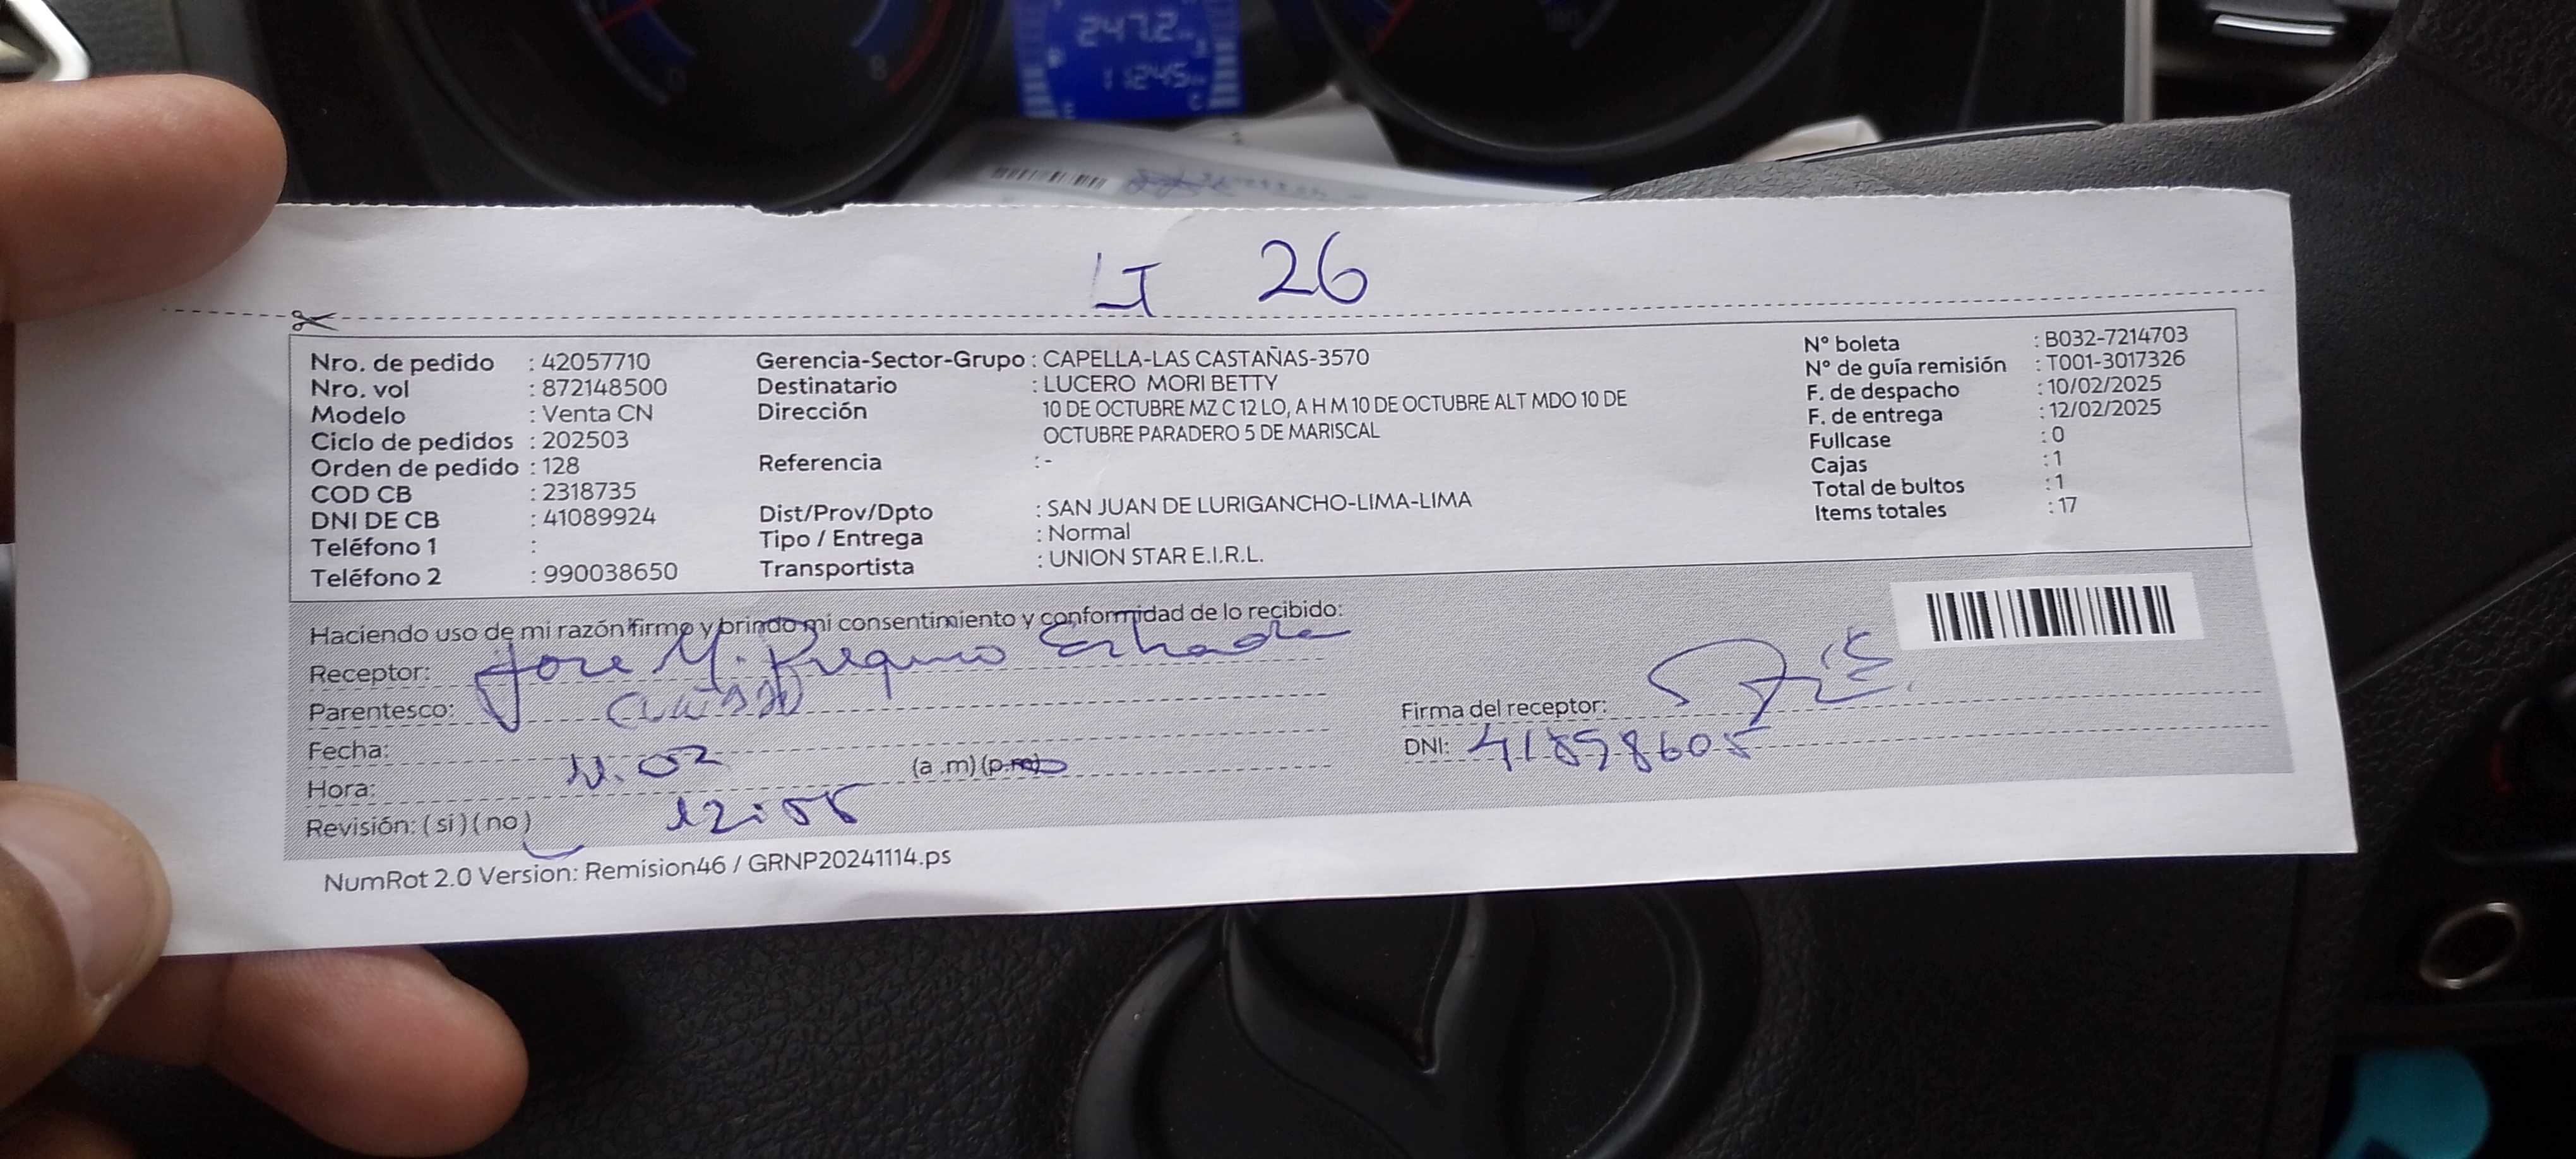 247.2
11245
LT 26
Nro. de pedido : 42057710
Nro. vol : 872148500
Modelo : Venta CN
Ciclo de pedidos : 202503
Orden de pedido : 128
COD CB : 2318735
DNI DE CB : 41089924
Teléfono 1 :
Teléfono 2 : 990038650
Gerencia-Sector-Grupo : CAPELLA-LAS CASTAÑAS-3570
Destinatario : LUCERO MORI BETTY
Dirección 10 DE OCTUBRE MZ C 12 LO, A H M 10 DE OCTUBRE ALT MDO 10 DE
OCTUBRE PARADERO 5 DE MARISCAL
Referencia : -
Dist/Prov/Dpto : SAN JUAN DE LURIGANCHO-LIMA-LIMA
Tipo / Entrega : Normal
Transportista : UNION STAR E.I.R.L.
N° boleta : B032-7214703
N° de guía remisión : T001-3017326
F. de despacho : 10/02/2025
F. de entrega : 12/02/2025
Fullcase : 0
Cajas : 1
Total de bultos : 1
Items totales : 17
Haciendo uso de mi razón firmo y brindo mi consentimiento y conformidad de lo recibido:
Receptor: Jose M.
Parentesco:
Fecha:
Hora: (a .m) (p.m)
12:55
Revisión: ( si ) ( no )
Firma del receptor:
DNI: 41898605
NumRot 2.0 Version: Remision46 / GRNP20241114.ps